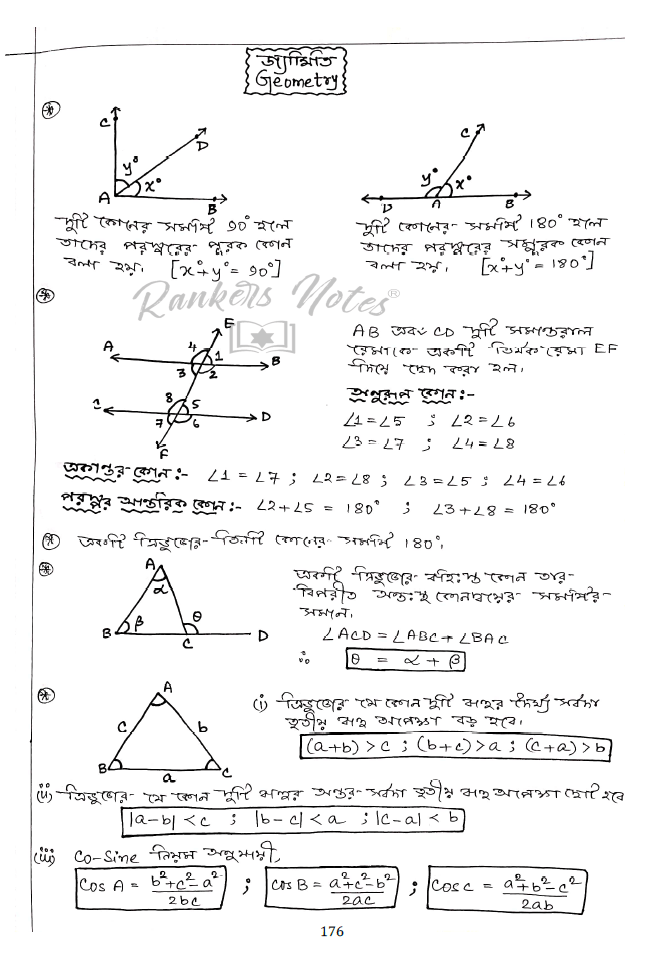 জ্যামিতি
Geometry
C
D
y°
x°
A
B
C
y°
x°
D
A
B
দুটি কোনের সমষ্টি 90° হলে
তাদের পরস্পরের পূরক কোন
বলা হয়। [x°+y°= 90°]
দুটি কোনের সমষ্টি 180° হলে
তাদের পরস্পরের সম্পূরক কোন
বলা হয়। [x°+y° = 180°]
Rankers Notes®
E
A
4
1
3
2
B
C
8
5
7
6
D
F
AB এবং CD দুটি সমান্তরাল
রেখাকে একটি তির্যক রেখা EF
দিয়ে ছেদ করা হল।
অনুরূপ কোন:-
∠1=∠5 ; ∠2=∠6
∠3=∠7 ; ∠4=∠8
একান্তর কোন:- ∠1 = ∠7 ; ∠2=∠8 ; ∠3=∠5 ; ∠4=∠6
পরস্পর আন্তরিক কোন:- ∠2+∠5 = 180° ; ∠3+∠8 = 180°
একটি ত্রিভুজের তিনটি কোনের সমষ্টি 180°।
A
α
B
β
θ
C
D
একটি ত্রিভুজের বহিঃস্থ কোন তার
বিপরীত অন্তঃস্থ কোনদ্বয়ের সমষ্টির
সমান।
∠ACD = ∠ABC + ∠BAC
∴ θ = α + β
A
c
b
B
a
C
(i) ত্রিভুজের যে কোন দুটি বাহুর দৈর্ঘ্য সর্বদা
তৃতীয় বাহু অপেক্ষা বড় হবে।
(a+b) > c ; (b+c) > a ; (c+a) > b
(ii) ত্রিভুজের যে কোন দুটি বাহুর অন্তর সর্বদা তৃতীয় বাহু অপেক্ষা ছোট হবে
|a-b| < c ; |b-c| < a ; |c-a| < b
(iii) Co-Sine নিয়ম অনুযায়ী,
Cos A = b²+c²-a² / 2bc ; Cos B = a²+c²-b² / 2ac ; Cos C = a²+b²-c² / 2ab
176